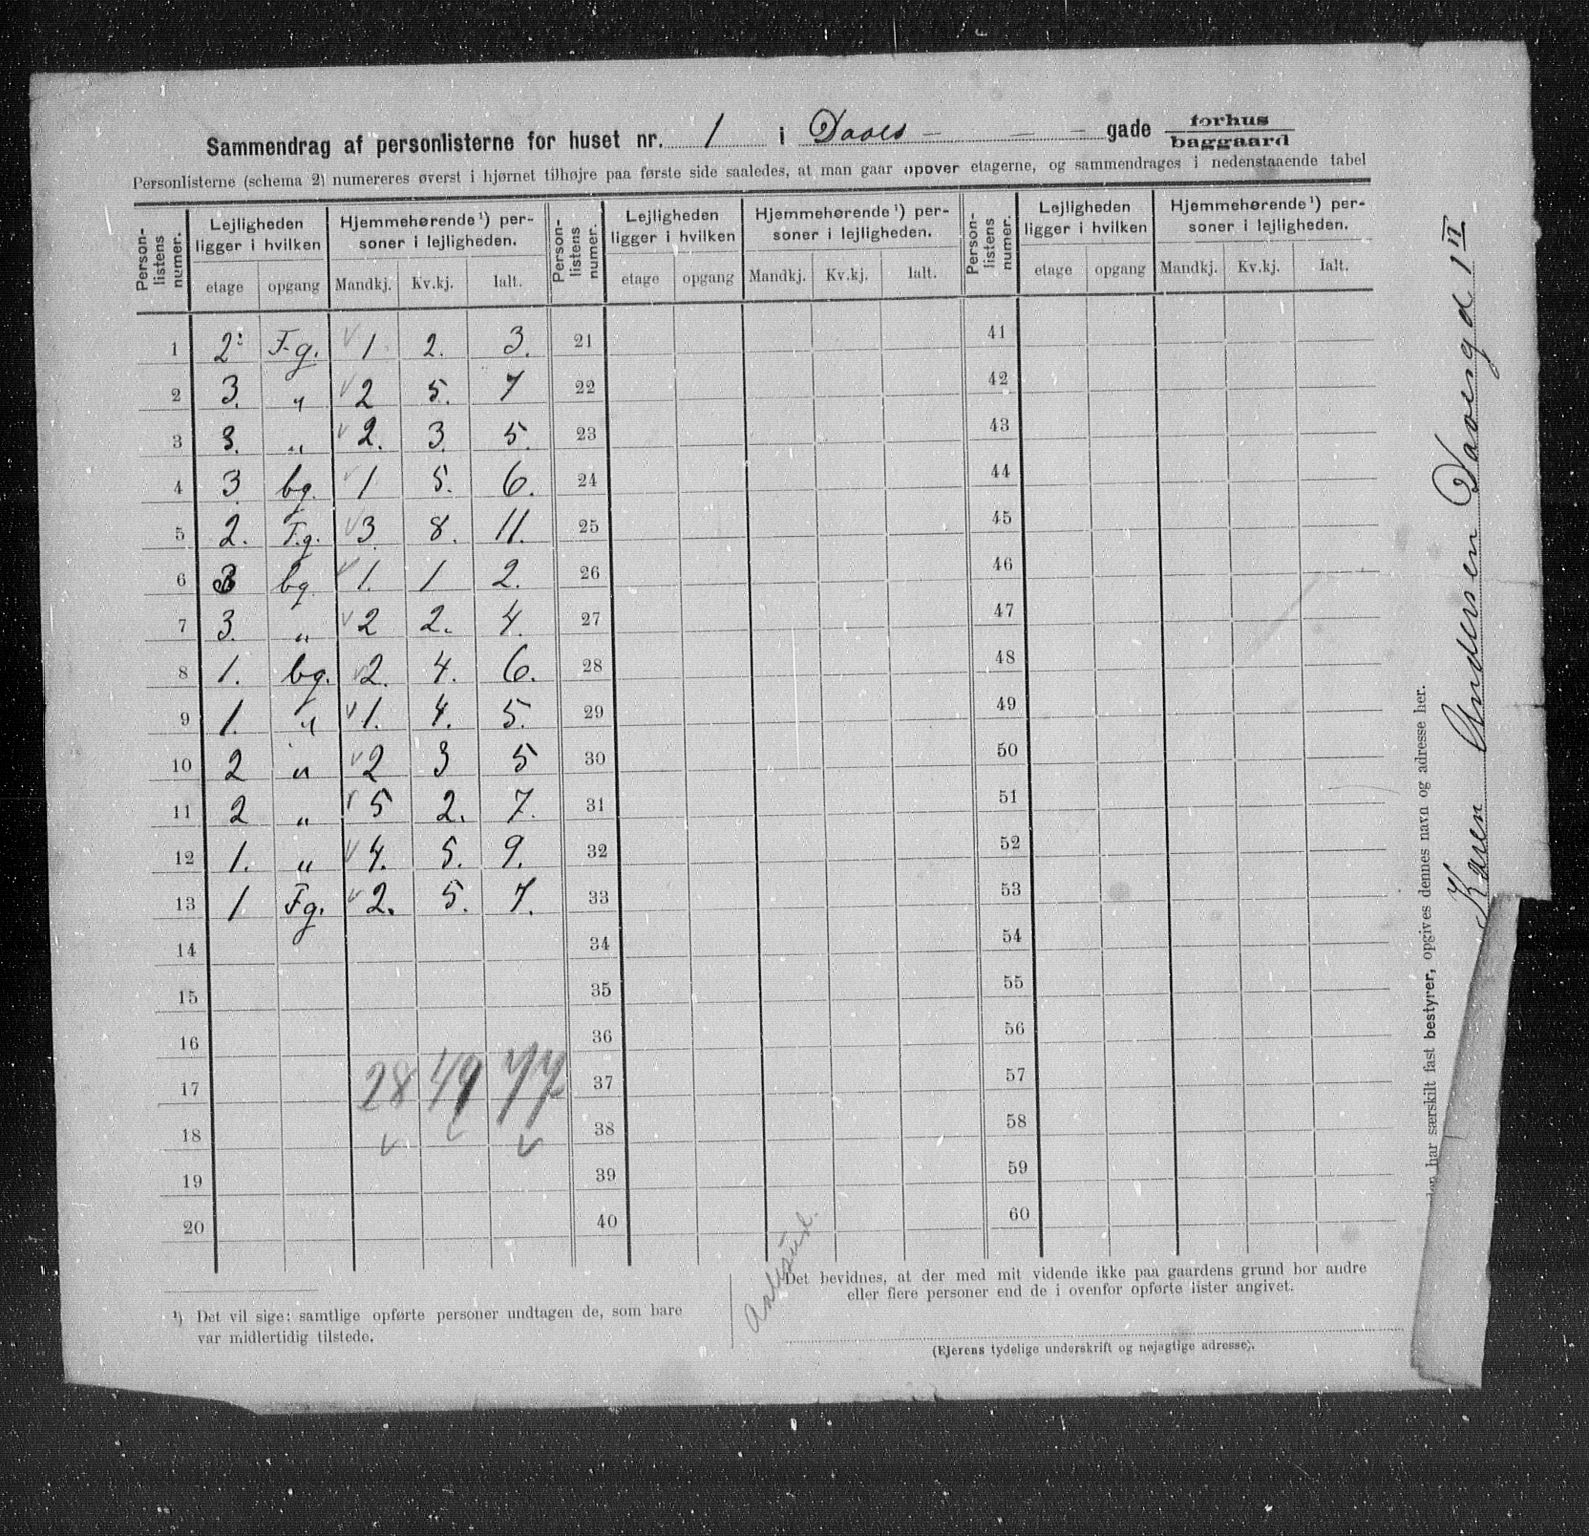 Sammendrag af personlisterne for huset nr. 1 i Daaes - - - gade forhus
baggaard
Personlisterne (schema 2) numereres øverst i hjørnet tilhøjre paa første side saaledes, at man gaar opover etagerne, og sammendrages i nedenstaaende tabel
Person-listens numer. Lejligheden ligger i hvilken Hjemmehørende ¹) personer i lejligheden. Person-listens numer. Lejligheden ligger i hvilken Hjemmehørende ¹) personer i lejligheden. Person-listens numer. Lejligheden ligger i hvilken Hjemmehørende ¹) personer i lejligheden.
etage opgang Mandkj. Kv.kj. Ialt. etage opgang Mandkj. Kv.kj. Ialt. etage opgang Mandkj. Kv.kj. Ialt.
1 2: F.g. v 1 2. 3. 21 41
2 3. " v 2 5. 7 22 42
3 3. " v 2. 3. 5. 23 43
4 3 bg. v 1 5. 6. 24 44
5 2. F.g. v 3. 8. 11. 25 45
6 3 bg. v 1. 1 2. 26 46
7 3. " v 2 2. 4. 27 47
8 1. bg. v 2. 4. 6. 28 48
9 1. " v 1. 4. 5. 29 49
10 2 " v 2 3 5 30 50
11 2 " v 5 2. 7. 31 51
12 1. " v 4. 5. 9. 32 52
13 1 Fg. v 2. 5. 7. 33 53
14 34 54
15 35 55
16 36 56
17 28 49 77 37 57
18 v v v 38 58
19 39 59
20 40 60
¹) Det vil sige: samtlige opførte personer undtagen de, som bare
var midlertidig tilstede.
Det bevidnes, at der med mit vidende ikke paa gaardens grund bor andre
eller flere personer end de i ovenfor opførte lister angivet.
(Ejerens tydelige underskrift og nøjagtige adresse).
har særskilt fast bestyrer, opgives dennes navn og adresse her.
Karen Andersen 1 II